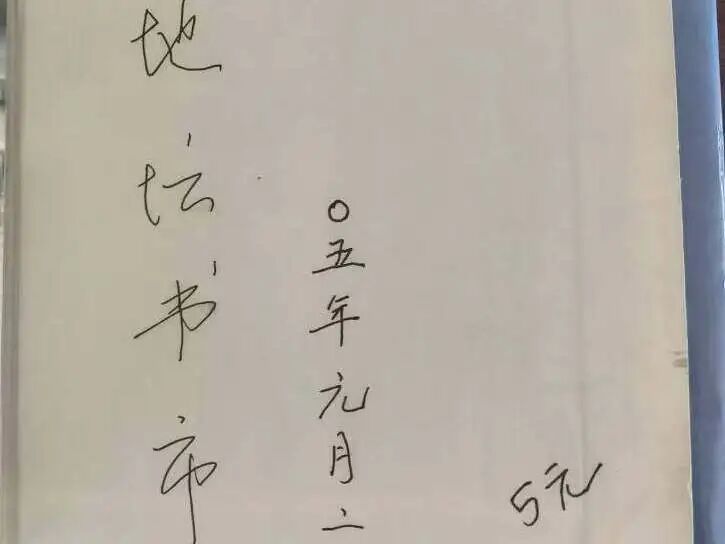 地坛书市
〇五年元月二
5元